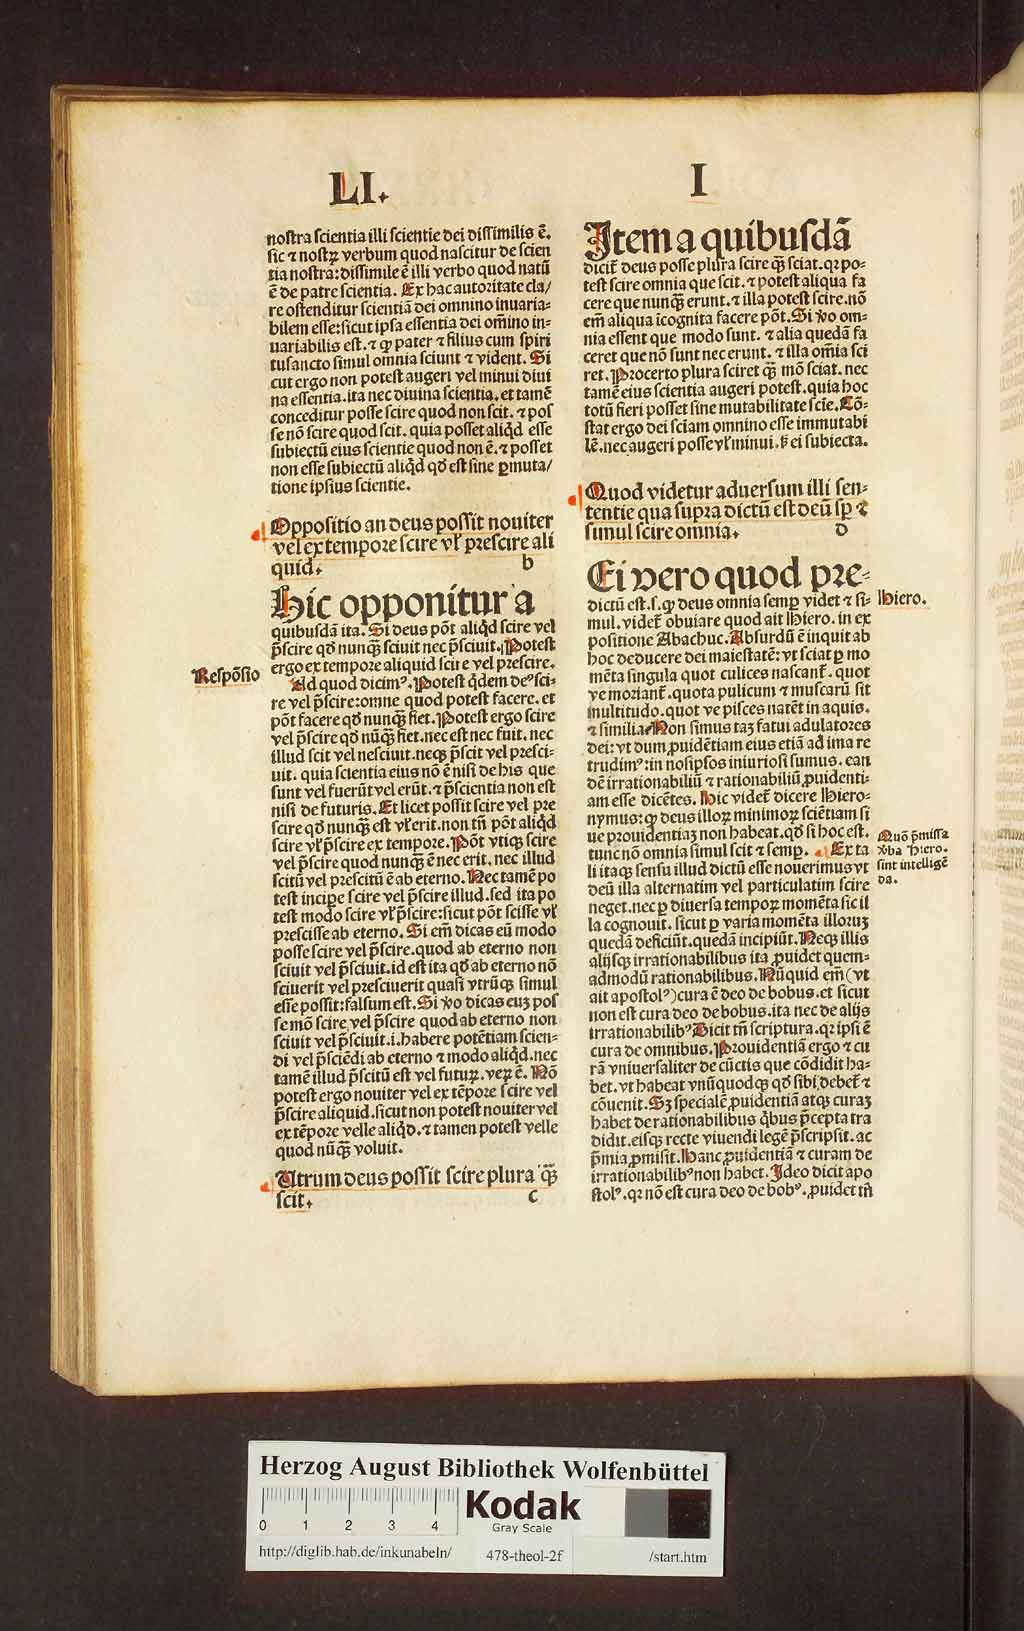 LI.
I
nostra scientia illi scientie dei dissimilis ē.
sic ⁊ nostꝝ verbum quod nascitur de scien
tia nostra: dissimile ē illi verbo quod natū
ē de patre scientia. Ex hac autoritate cla/
re ostenditur scientiā dei omnino inuaria-
bilem esse: sicut ipsa essentia dei om̄ino in-
uariabilis est. ⁊ ꝙ pater ⁊ filius cum spiri
tusancto simul omnia sciunt ⁊ vident. Si
cut ergo non potest augeri vel minui diui
na essentia. ita nec diuina scientia. et tamē
conceditur posse scire quod non scit. ⁊ pos
se nō scire quod scit. quia posset aliꝗd esse
subiectū eius scientie quod non ē. ⁊ posset
non esse subiectū aliꝗd qḋ est sine ꝑmuta/
tione ipsius scientie.
Oppositio an deus possit nouiter
vel ex tempore scire vl̓ prescire ali
quid.
b
Hic opponitur a
quibusdā ita. Si deus pōt aliꝗd scire vel
p̄scire qḋ nunꝗ̄ sciuit nec p̄sciuit. Potest
ergo ex tempore aliquid scire vel prescire.
Respōsio
Ad quod dicimꝰ. Potest ꝗdem deꝰ sci-
re vel p̄scire: omne quod potest facere. et
pōt facere qḋ nunꝗ̄ fiet. Potest ergo scire
vel p̄scire qḋ nūꝗ̄ fiet. nec est nec fuit. nec
illud scit vel nesciuit. neqꝫ p̄scit vel presci-
uit. quia scientia eius nō ē nisi de his que
sunt vel fuerūt vel erūt. ⁊ p̄scientia non est
nisi de futuris. Et licet possit scire vel pre
scire qḋ nunꝗ̄ est vl̓ erit. non tn̄ pōt aliꝗd
scire vl̓ p̄scire ex tempore. Pōt vtiqꝫ scire
vel p̄scire quod nunꝗ̄ ē nec erit. nec illud
scitū vel prescitū ē ab eterno. Nec tamē po
test incipe̱ scire vel p̄scire illud. sed ita po
test modo scire vl̓ p̄scire: sicut pōt scisse vl̓
prescisse ab eterno. Si em̄ dicas eū modo
posse scire vel p̄scire. quod ab eterno non
sciuit vel p̄sciuit. id est ita qḋ ab eterno nō
sciuerit vel presciuerit quasi vtrūqꝫ simul
esse possit: falsum est. Si ꝟo dicas euꝫ pos
se mō scire vel p̄scire quod ab eterno non
sciuit vel p̄sciuit. i. habere potētiam scien-
di vel p̄sciēdi ab eterno ⁊ modo aliꝗd. nec
tamē illud p̄scitū est vel futuꝝ. veꝝ ē. Nō
potest ergo nouiter vel ex tēpore scire vel
p̄scire aliquid. sicut non potest nouiter vel
ex tēpore velle aliꝗd. ⁊ tamen potest velle
quod nūꝗ̄ voluit.
Utrum deus possit scire plura ꝗ̄
scit.
c
Item a quibusdā
dicit̄ deus posse plura scire ꝗ̄ sciat. qꝛ po-
test scire omnia que scit. ⁊ potest aliqua fa
cere que nunꝗ̄ erunt. ⁊ illa potest scire. nō
em̄ aliqua īcognita facere pōt. Si ꝟo om-
nia essent que modo sunt. ⁊ alia quedā fa
ceret que nō sunt nec erunt. ⁊ illa om̄ia sci
ret. Procerto plura sciret ꝗ̄ mō sciat. nec
tamē eius scientia augeri potest. quia hoc
totū fieri posset sine mutabilitate scīe. Cō-
stat ergo dei sciam omnino esse immutabi
lē. nec augeri posse vl̓ minui. ꝫ ei subiecta.
Quod videtur aduersum illi sen-
tentie qua supra dictū est deū sꝑ ⁊
simul scire omnia.
d
Ei vero quod pre-
dictū est. s. ꝙ deus omnia semꝑ videt ⁊ si-
Hiero.
mul. videt̄ obuiare quod ait Hiero. in ex
positione Abachuc. Absurdū ē inquit ab
hoc deducere dei maiestatē: vt sciat ꝑ mo
mēta singula quot culices nascant̄. quot
ve moriant̄. quota pulicum ⁊ muscarū sit
multitudo. quot ve pisces natēt in aquis.
⁊ similia. Non simus taꝫ fatui adulatores
dei: vt dum ꝓuidētiam eius etiā ad ima re
trudimꝰ: in nosipsos iniuriosi sumus. ean
dē irrationabiliū ⁊ rationabiliū ꝓuidenti-
am esse dicētes. Hic videt̄ dicere Hiero-
nymus: ꝙ deus illoꝝ minimoꝝ sciētiam si
ue prouidentiaꝫ non habeat. qḋ si hoc est.
tunc nō omnia simul scit ⁊ semꝑ. Ex ta
Quō p̄missa
ꝟba Hiero.
sint intelligē
da.
li itaqꝫ sensu illud dictū esse nouerimus vt
deū illa alternatim vel particulatim scire
neget. nec ꝑ diuersa tempoꝝ momēta sic il
la cognouit. sicut ꝑ varia momēta illoruꝫ
quedā deficiūt. quedā incipiūt. Neqꝫ illis
alijsqꝫ irrationabilibus ita ꝓuidet quem-
admodū rationabilibus. Nūquid em̄ (vt
ait apostolꝰ) cura ē deo de bobus. et sicut
non est cura deo de bobus. ita nec de alijs
irrationabilibꝰ Dicit tn̄ scriptura. qꝛ ipsi ē
cura de omnibus. Prouidentiā ergo ⁊ cu
rā vniuersaliter de cūctis que cōdidit ha-
bet. vt habeat vnūquodqꝫ qḋ sibi debet̄ ⁊
cōuenit. Sꝫ specialē ꝓuidentiā atqꝫ curaꝫ
habet de rationabilibus ꝗbus p̄cepta tra
didit. eisqꝫ recte viuendi legē p̄scripsit. ac
p̄mia ꝓmisit. Hanc ꝓuidentiā ⁊ curam de
irrationabilibꝰ non habet. Ideo dicit apo
stolꝰ. qꝛ nō est cura deo de bobꝰ. ꝓuidet tn̄
Herzog August Bibliothek Wolfenbüttel
0 1 2 3 4
Kodak
Gray Scale
http://diglib.hab.de/inkunabeln/
478-theol-2f
/start.htm